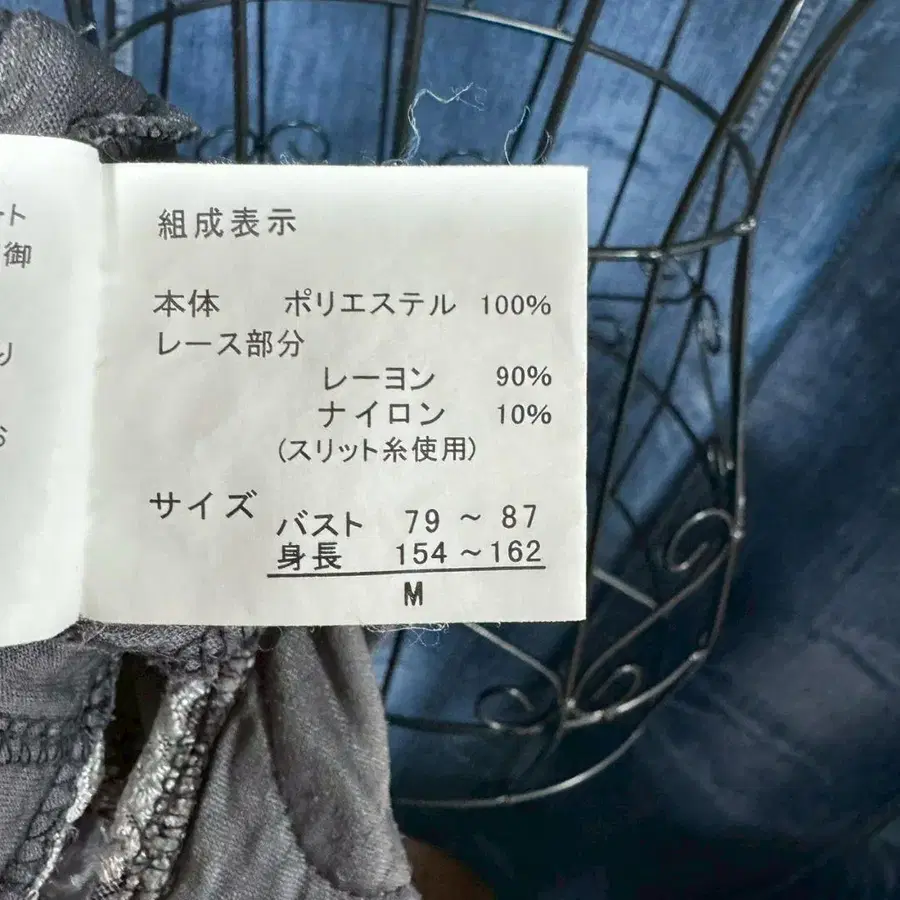 ート
御
り
組成表示
本体 ポリエステル 100%
レース部分
レーヨン 90%
ナイロン 10%
(スリット糸使用)
サイズ
バスト 79 ~ 87
身長 154 ~ 162
M